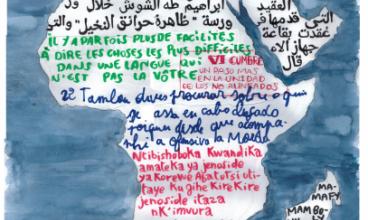 ابراهيم طه الشوش خلال
ورسة "ظاهرة حرائق النخيل"
العقيد
التي قدمها في
عقدت بقاعة
جهاز الأم
قال
IL Y A PARFOIS PLUS DE FACILITÉS
À DIRE LES CHOSES LES PLUS DIFFICILES
DANS UNE LANGUE QUI
N'EST PAS LA VÔTRE
VI CUMBRE
UN PASO MAS
EN LA UNIDAD
DE LOS NO ALINEADOS
procurar sobre o quis
se assa en cabo
desde que acompa
a ofensiva la
Ntibishoboka Kwandika
amateka ya jenoside
yakorewe Abatutsi uti-
taye Ku gihe Kire Kire
jenoside itaza
nK'imvura
MAMAFY
MAMBOLY